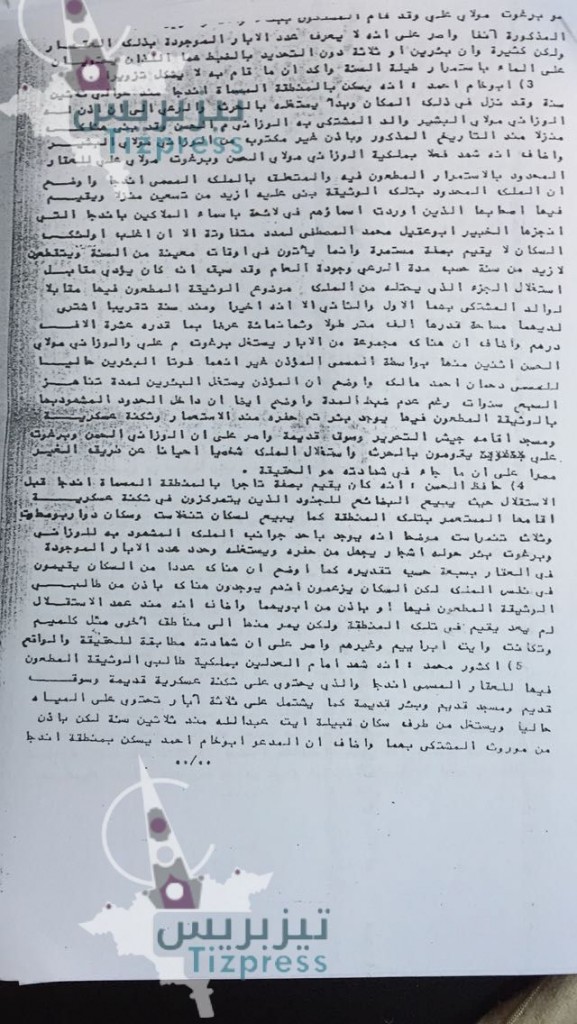 هو برغوت مولاي علي وقد قام المستعمر
المذكورة آنفا واصر على انه لا يعرف عدد الابار الموجودة بذلك العقار
ولكن كثيرة وان بئرين او ثلاثة دون التحديد بالضبط هما اللذان يحتويان
على الماء باستمرار طيلة السنة واكد ان ما قام به لا يشكل تزويرا
3) ابوخام احمد : انه يسكن بالمنطقة المسماة اندجا منذ حوالي ثلاثين
سنة وقد نزل في ذلك المكان وبدأ يستغله بالحرث والرعي
الوزاني مولاي البشير والد المشتكى به الوزاني م الحسن وقد بنى هناك
منزلا منذ التاريخ المذكور وباذن غير مكتوب من الوزاني مولاي البشير
واضاف انه شهد فعلا بملكية الوزاني مولاي الحسن وبرغوت مولاي علي للعقار
المحدود بالاستمرار المطعون فيه والمتعلق بالملك المسمى اندجا واوضح
ان الملك المحدود بتلك الوثيقة بنى عليه ازيد من تسعين منزلا ويقيم
فيها اصحابها الذين اوردت اسماؤهم في لائحة باسماء الملاكين باندجا التي
انجزها الخبير ابوعقيل محمد المصطفى لمدد متفاوتة الا ان اغلب اولئك
السكان لا يقيم بصفة مستمرة وانما ياتون في اوقات معينة من السنة وينقطعون
لازيد من سنة حسب مدة الرعي وجودة العام وقد سبق انه كان يؤدي مقابل
استغلال الجزء الذي يحتله من الملك موضوع الوثيقة المطعون فيها مقابلا
لوالد المشتكى بهما الاول والثاني الا انه اخيرا ومنذ سنة تقريبا اشترى
لديهما مساحة قدرها الف متر طولا وثمانمائة عرضا بما قدره عشرة الاف
درهم واضاف ان هناك مجموعة من الابار يستغل برغوت م علي والوزاني مولاي
الحسن اثنين منها بواسطة المسمى المؤذن غير انهما فوتا البئرين حاليا
للمسمى دحمان احمد مالك واوضح ان المؤذن يستغل البئرين لمدة تناهز
السبع سنوات رغم عدم ضبط المدة واوضح ايضا ان داخل الحدود المشهود بها
بالوثيقة المطعون فيها يوجد بئر تم حفره منذ الاستعمار وثكنة عسكرية
ومسجد اقامه جيش التحرير وسوق قديمة واصر على ان الوزاني الحسن وبرغوت
علي يقومون بالحرث واستغلال الملك شخصيا احيانا عن طريق الغير
مصرا على ان ما جاء في شهادته هو الحقيقة .
4) حافظ الحسن : انه كان يقيم بصفة تاجرا بالمنطقة المسماة اندجا قبل
الاستقلال حيث يبيع البضائع للجنود الذين يتمركزون في ثكنة عسكرية
اقامها المستعمر بتلك المنطقة كما يبيع لسكان تنغلات وسكان دوار
وثلاث تندراست موضحا انه يوجد باحد جوانب الملك المشهود به للوزاني
وبرغوت بئر حوله اشجار يجهل من حفره ويستغله وحدد عدد الابار الموجودة
في العقار بسبعة حسب تقديره كما اوضح ان هناك عددا من السكان يقيمون
في نفس الملك لكن السكان يزعمون انهم يوجدون هناك باذن من طالبي
الوثيقة المطعون فيها او باذن من ابويهما واضاف انه منذ عهد الاستقلال
لم يعد يقيم في تلك المنطقة ولكن يمر منها الى مناطق اخرى مثل كلميم
وتكانت وايت ابراييم وغيرهم واصر على ان شهادته مطابقة للحقيقة والواقع
5) اكشور محمد : انه شهد امام العدلين بملكية طالبي الوثيقة المطعون
فيها للعقار المسمى اندجا والذي يحتوي على ثكنة عسكرية قديمة وسوق
قديم ومسجد قديم وبئر قديمة كما يشتمل على ثلاثة آبار تحتوي على المياه
حاليا ويستغل من طرف سكان قبيلة ايت عبدالله منذ ثلاثين سنة لكن باذن
من موروث المشتكى بهما واضاف ان المدعو ابوخام احمد يسكن بمنطقة اندجا
٠٠/٠٠
تيزبريس
Tizpress
تيزبريس
Tizpress